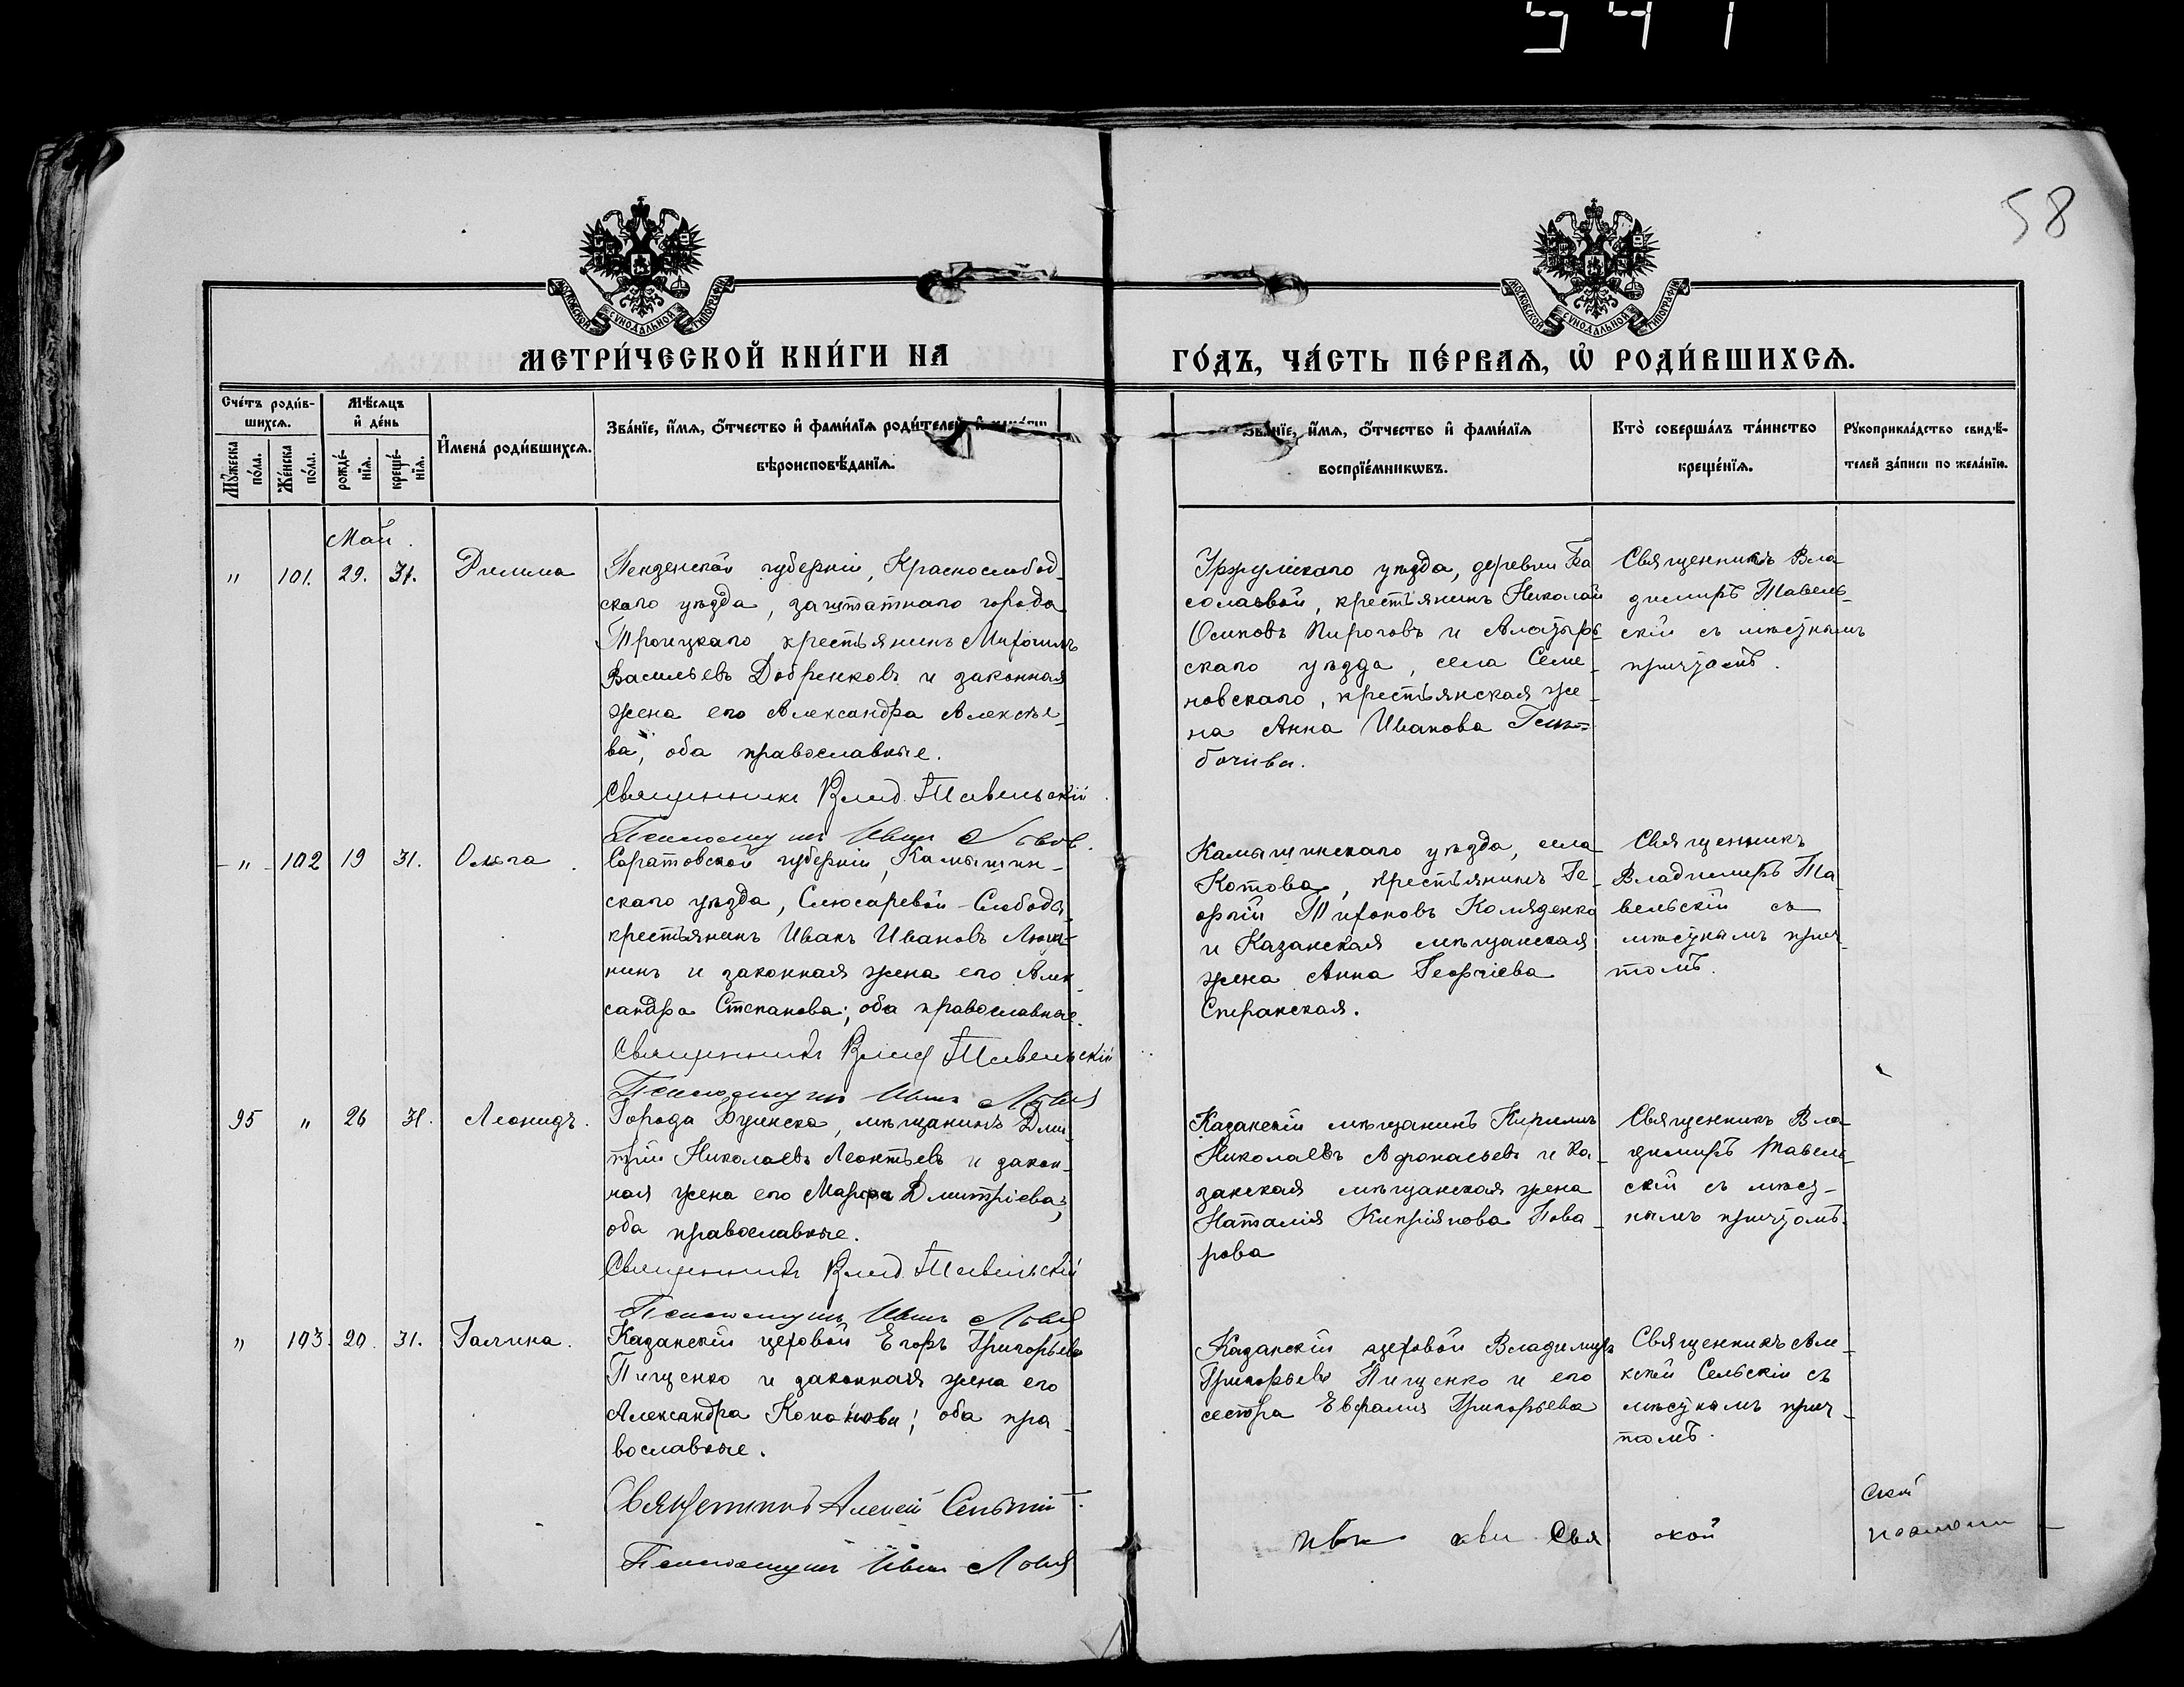 541
58
МОСКОВСКОЙ СУНОДАЛЬНОЙ ТИПОГРАФІИ
МОСКОВСКОЙ СУНОДАЛЬНОЙ ТИПОГРАФІИ
МЕТРИ́ЧЕСКОЙ КНИ́ГИ НА ГО́ДЪ, ЧА́СТЬ ПЕ́РВАѦ, Ѡ҆ РОДИ́ВШИХСѦ.
Сче́тъ роди́в-
шихсѧ.
Мꙋ́жеска по́ла.
Же́нска по́ла.
Мѣ́сѧцъ
и҆ де́нь
рожде́-
нїѧ.
креще́-
нїѧ.
И҆мена̀ роди́вшихсѧ.
Зва́нїе, и҆́мѧ, ѻ҆́тчество и҆ фами́лїѧ роди́телей, и҆
вѣроисповѣ́данїѧ.
Зва́нїе, и҆́мѧ, ѻ҆́тчество и҆ фами́лїѧ
воспрїе́мникѡвъ.
Кто̀ соверша́лъ та́инство
креще́нїѧ.
Рꙋкоприкла́дство свидѣ́-
телей за́писи по жела́нїю.
Май.
" 101. 29. 31. Римма
Пензенской губерніи, Краснослобод-
скаго уѣзда, заштатнаго города
Троицкаго крестьянинъ Михаилъ
Васильевъ Добренковъ и законная
жена его Александра Алексѣе-
ва, оба православные.
Священникъ Влад. Тавельскій
Псаломщикъ Иван
Уржумскаго уѣзда, деревни
крестьянинъ Николай
Осиповъ Пироговъ и Алатыр-
скаго уѣзда, села Семе-
новскаго, крестьянская же-
на Анна Иванова
Священникъ Вла-
димиръ Тавель-
скій съ мѣстнымъ
причтомъ.
" 102 19 31. Ольга
Саратовской губерніи, Камышин-
скаго уѣзда, Слюсаревой Слободы
крестьянинъ Иванъ Ивановъ
и законная жена его Алек-
сандра Степанова; оба православные.
Священникъ Влад Тавельскій
Псаломщикъ Иван
Камышинскаго уѣзда, села
Котова, крестьянинъ Ге-
оргій Тихоновъ Коляденко
и Казанская мѣщанская
жена Анна Георгіева
Спиранская.
Священникъ
Владимиръ Та-
вельскій съ
мѣстнымъ прич-
томъ.
95 " 26 31. Леонидъ.
Города Буинска, мѣщанинъ Дми-
трій Николаевъ Леонтьевъ и закон-
ная жена его Марѳа Дмитріева;
оба православные.
Священникъ Влад. Тавельскій
Псаломщикъ Иван
Казанскій мѣщанинъ Кириллъ
Николаевъ Афонасьевъ и Ка-
занская мѣщанская жена
Наталія Кипріянова Пова-
рова
Священникъ Вла-
димиръ Тавель-
скій съ мѣст-
нымъ причтомъ.
" 103. 20. 31. Галина.
Казанскій цеховой Егоръ Григорьевъ
Пищенко и законная жена его
Александра Кононова; оба пра-
вославные.
Священникъ Алексій Сельскій
Псаломщикъ Иван
Казанскій цеховой Владимиръ
Григорьевъ Пищенко и его
сестра Евфалия Григорьева
Священникъ Але-
ксѣй Сельскій съ
мѣстнымъ прич-
томъ.
ской
Свя